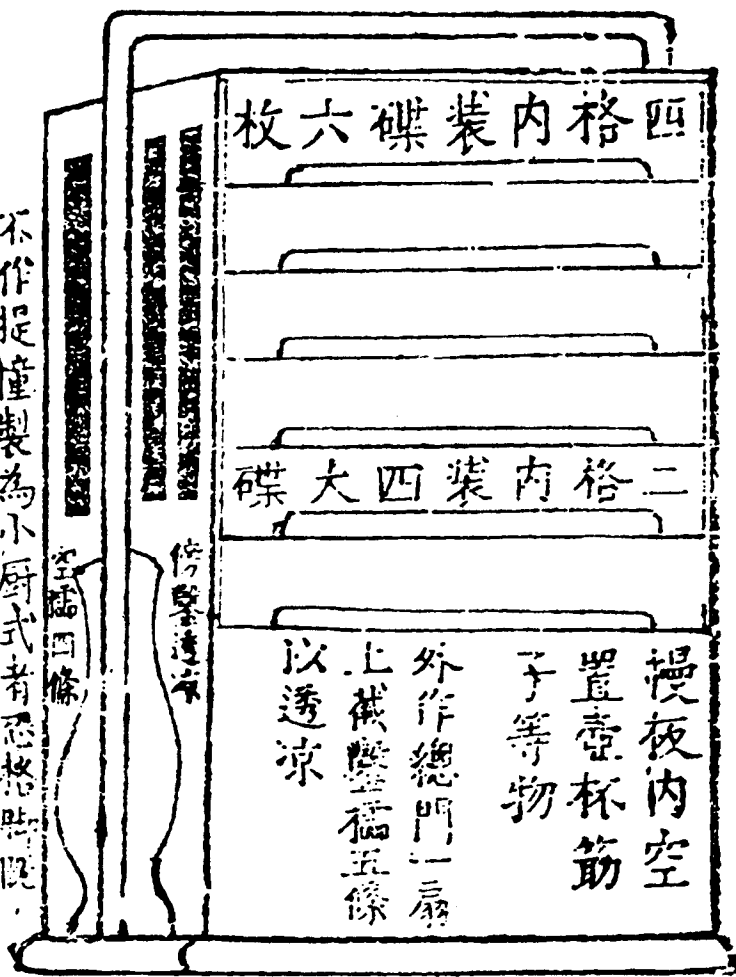 四格内装碟六枚
二格内装四大碟
慢板内空
置壼杯筋
子等物
外作總門一扇
上截鑿𣟴五條
以透凉
傍鑿透凉
空𣟴四條
不作提撞製為小厨式者恐格脚既